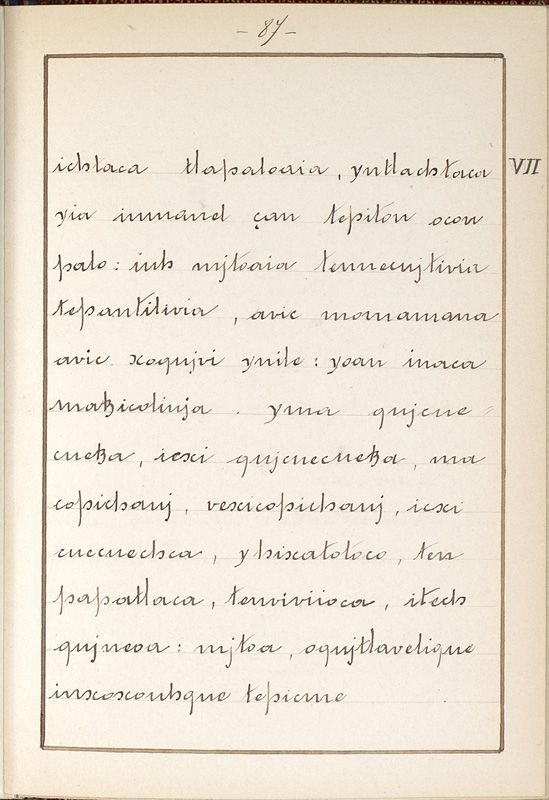 - 87 -
VII
ichtaca tlapaloaia, yntlachtaca
yia inmanel çan tepiton ocon
palo: iuh mjtoaia tennecujtivia
tepantilivia, avic momamana
avic xoqujvi ynile: yoan inaca
matzicolivja. yma qujcue=
cuetza, icxi qujcuecuetza, ma
copichauj, vexicopichauj, icxi
cuecuechca, yhixcatotoco, ten
papatlaca, tenviviioca, itech
qujneoa: mjtoa, oqujtlavelique
inxoxouhque tepicme